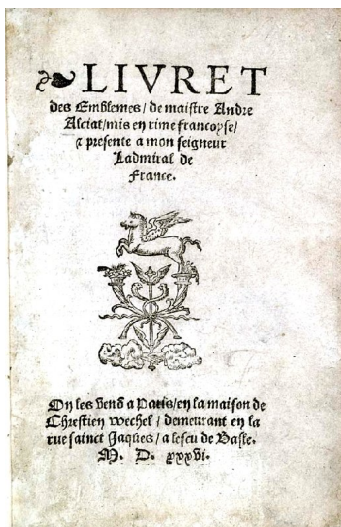 LIVRET
des Emblemes / de maistre Andre
Alciat / mis en rime francoyse /
⁊ presente a mon seigneur
Ladmiral de
France.
On les vend a Paris / en la maison de
Chrestien wechel / demeurant en la
rue sainct Jaques / a lescu de Basle.
M. D. xxxvi.